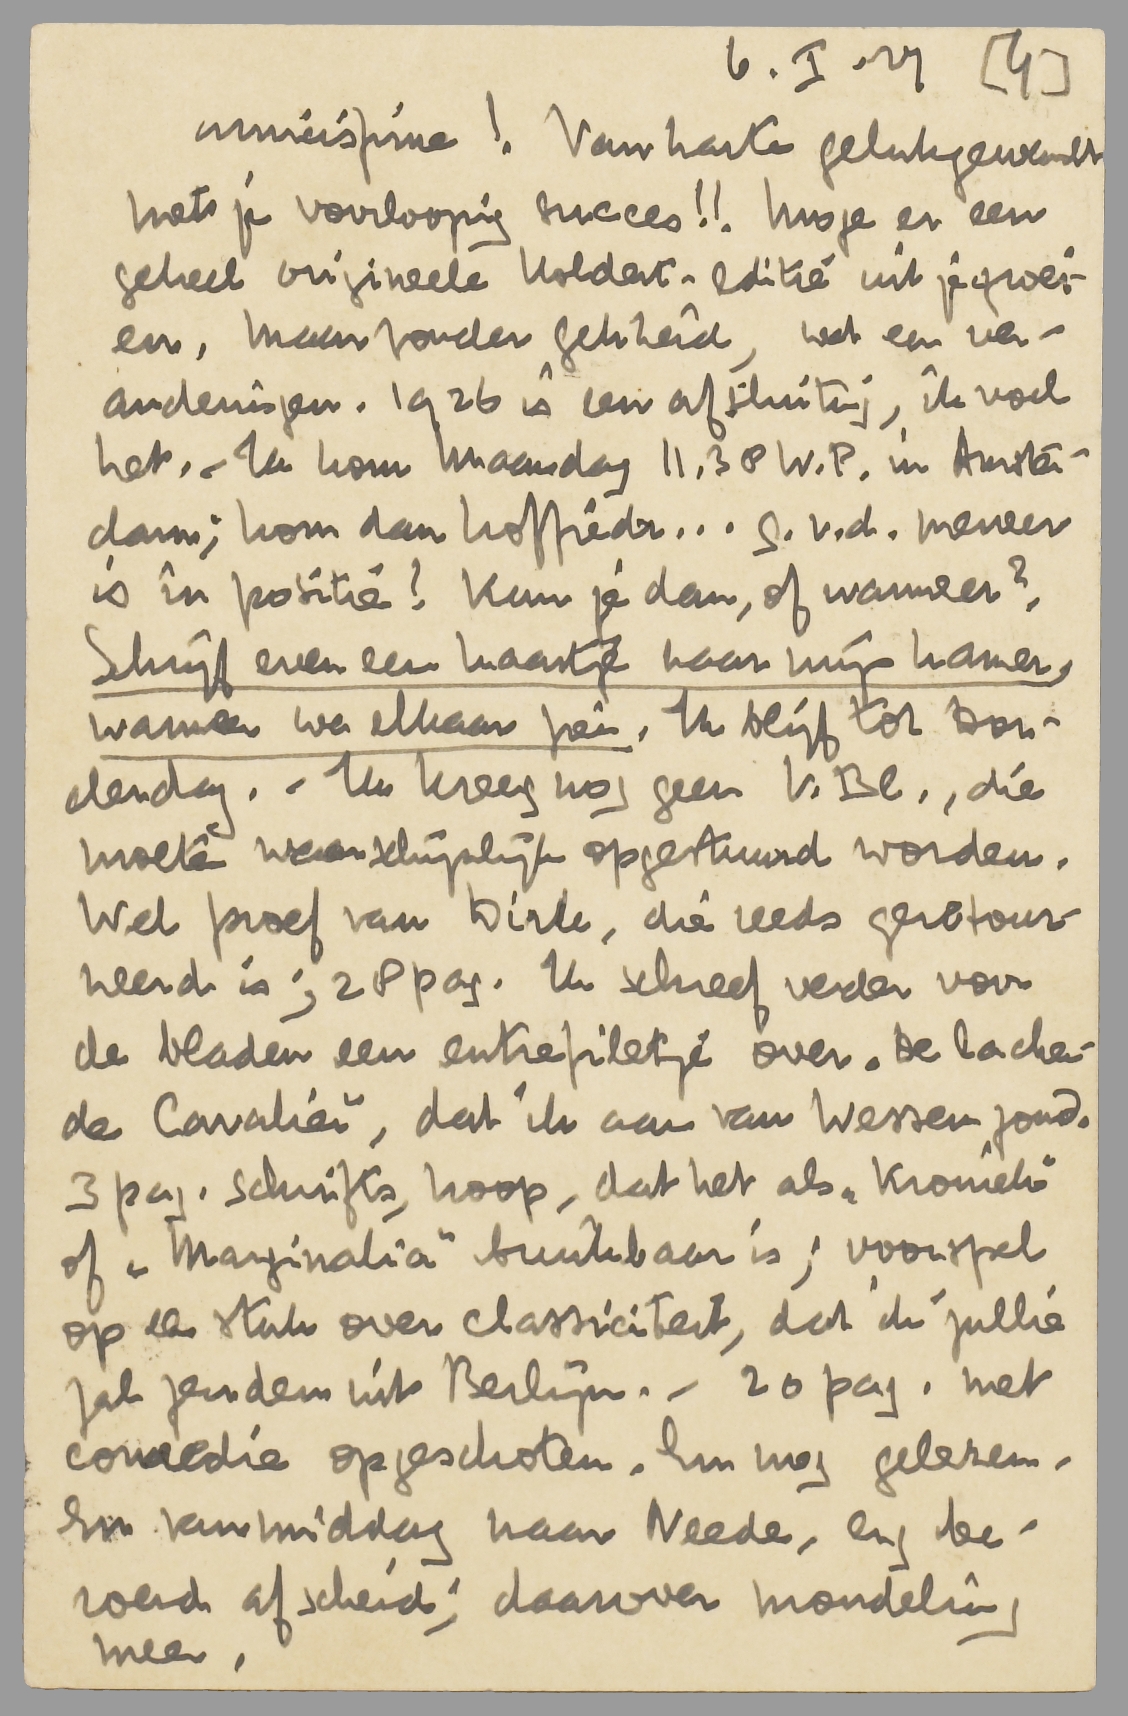 6. I. 27 [4]
amicissime! Van harte gelukgewenscht
met je voorloopig succes!! Moge er een
geheel origineele Koldert-editie uit je groei-
en. Maar zonder gekheid, wat een ver-
anderingen. 1926 is een afsluiting, ik voel
het. - Ik kom Maandag 11.38 W.P. in Amster-
dam; kom dan koffiedr... g.v.d. meneer
is in positie! Kun je dan, of wanneer?
Schrijf even een kaartje naar mijn kamer,
wanneer we elkaar zien. Ik blijf tot Don-
derdag. - Ik kreeg nog geen V.Bl., die
moeten waarschijnlijk opgestuurd worden.
Wel proef van Dirk, die reeds geretour-
neerd is; 28 pag. Ik schreef verder voor
de bladen een entrefiletje over „De lachen-
de Cavalier", dat ik aan van Wessem zond.
3 pag. schrifts, hoop, dat het als „Kroniek"
of „Marginalia" bruikbaar is; voorspel
op een stuk over classiciteit, dat ik jullie
zal zenden uit Berlijn. - 20 pag. met
comedie opgeschoten. Em. nog gelezen.
Em vanmiddag naar Neede, erg be-
roerd afscheid; daarover mondeling
meer.